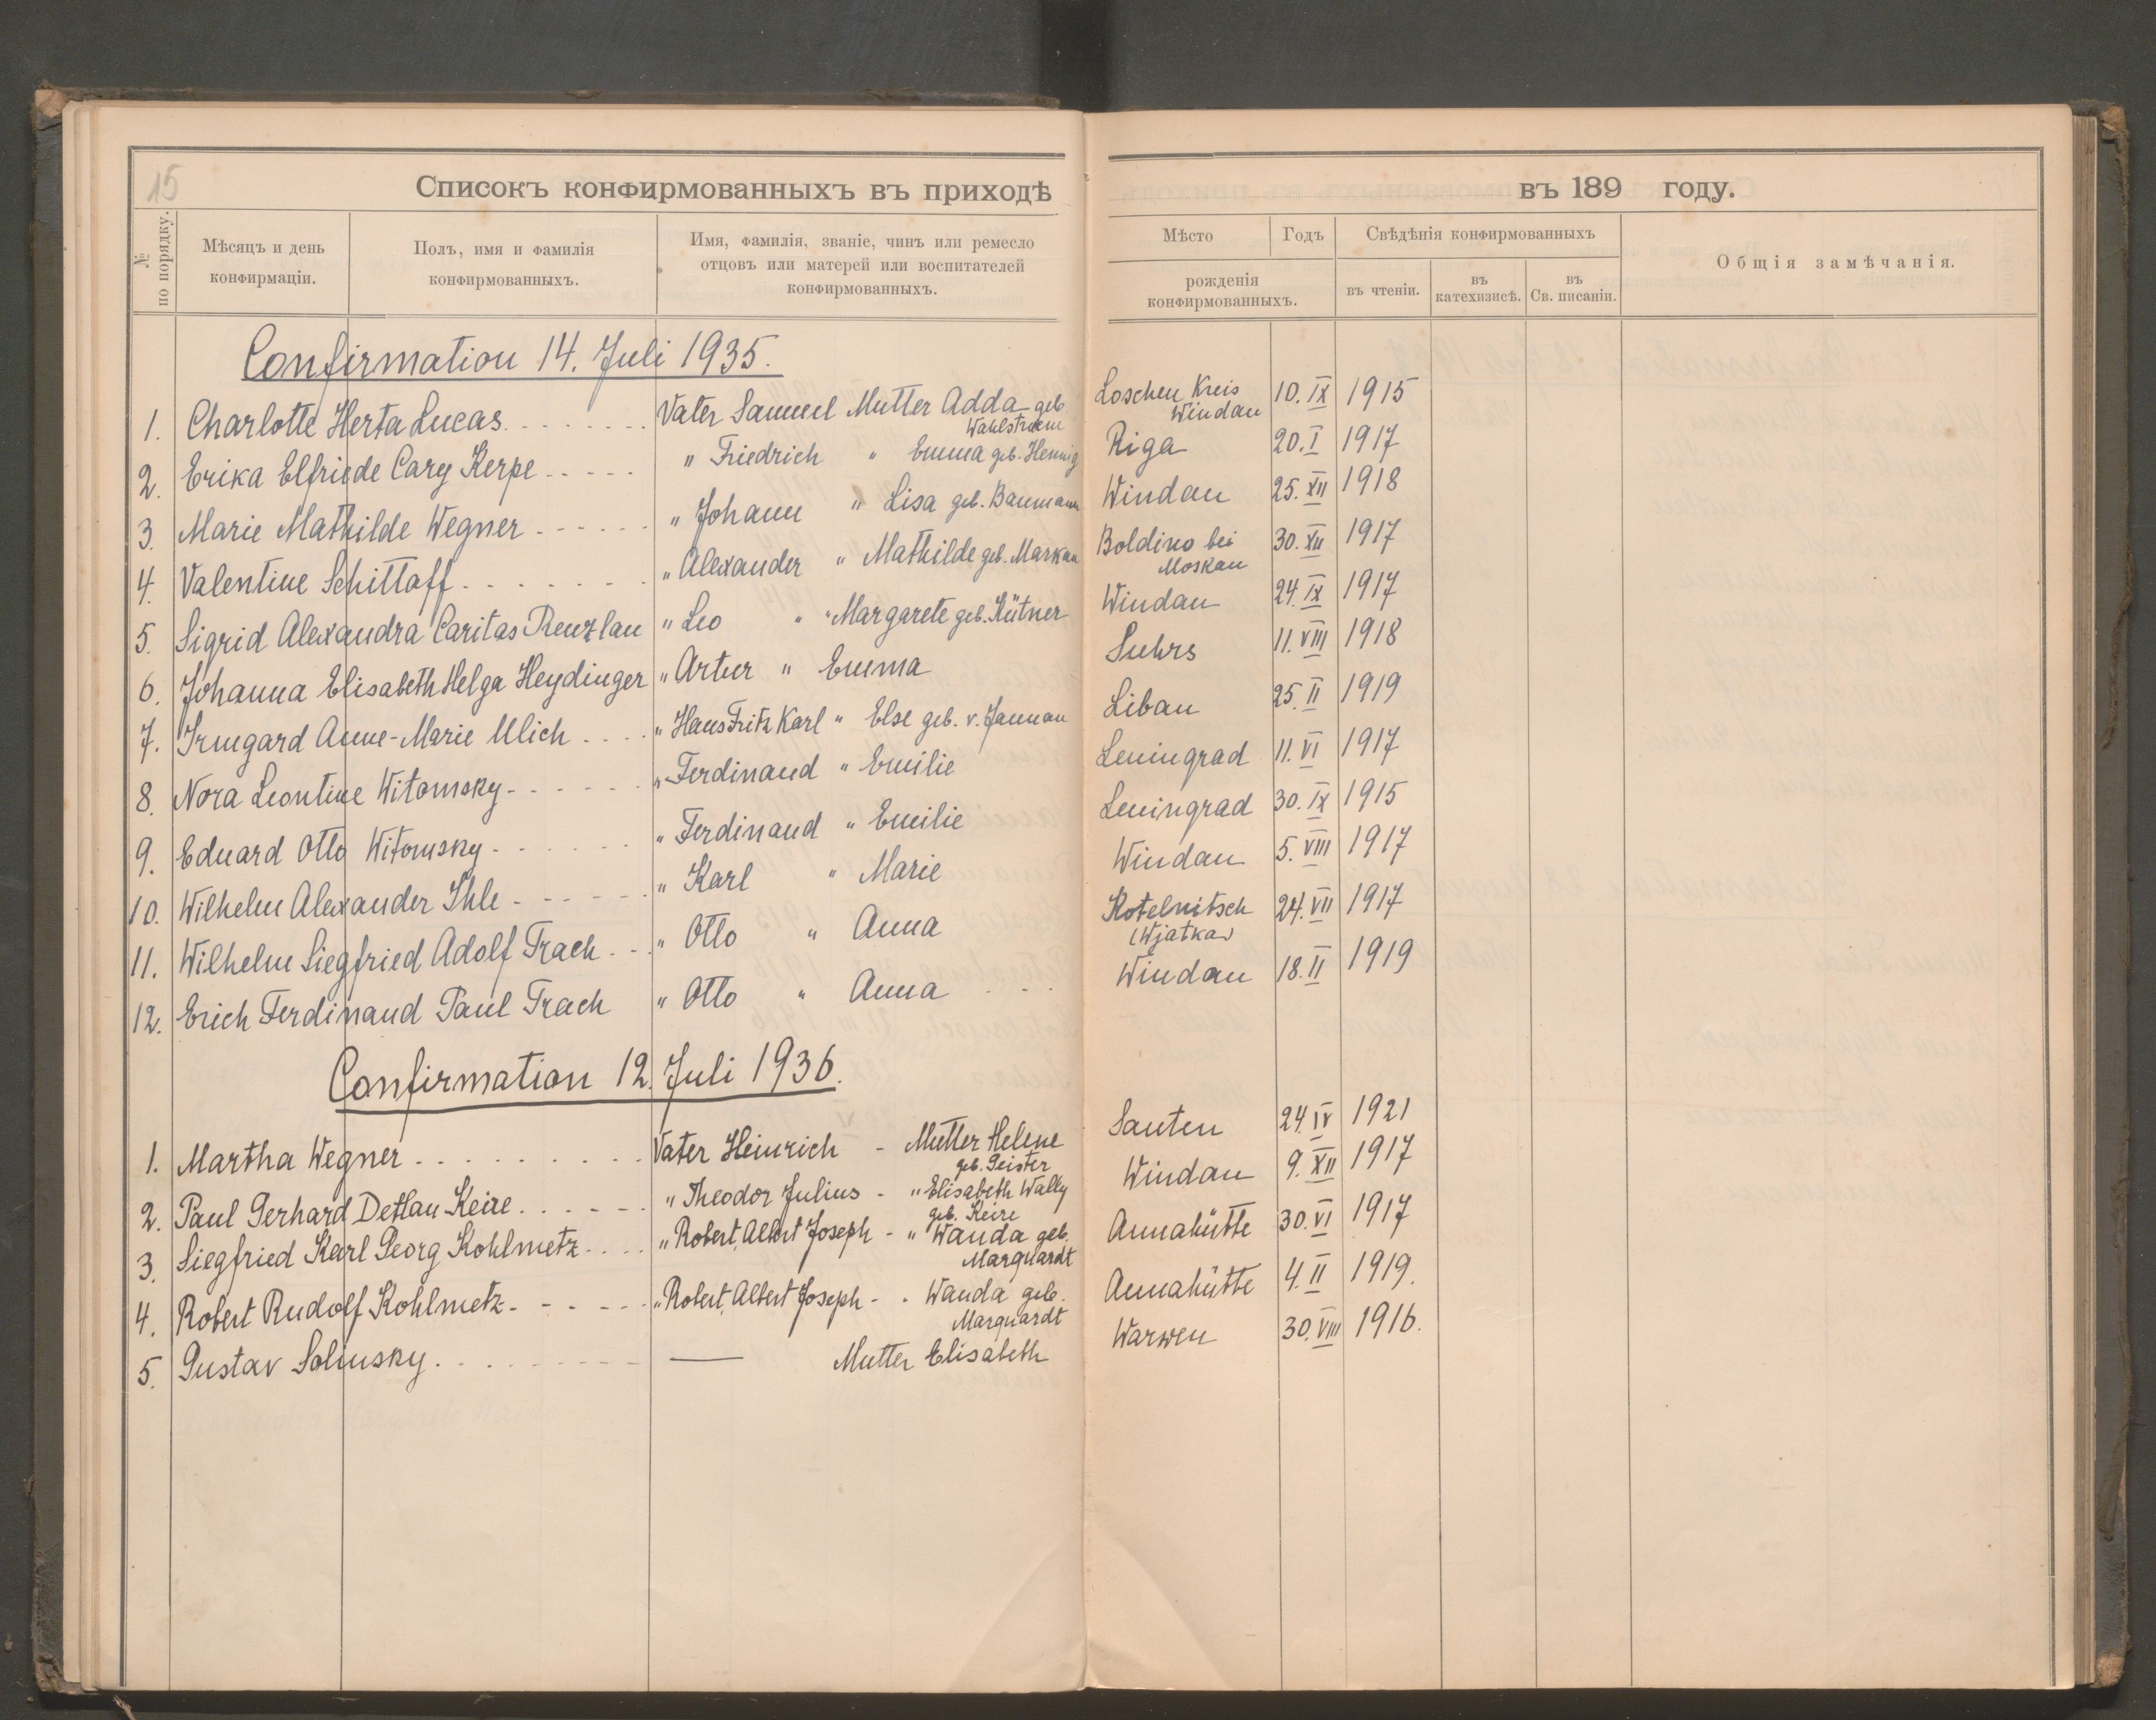 15
Списокъ конфирмованныхъ въ приходѣ въ 189 году.
№ по порядку.
Мѣсяцъ и день конфирмаціи.
Полъ, имя и фамилія конфирмованныхъ.
Имя, фамилія, званіе, чинъ или ремесло отцовъ или матерей или воспитателей конфирмованныхъ.
Мѣсто Годъ рожденія конфирмованныхъ.
Свѣдѣнія конфирмованныхъ
въ чтеніи.
въ катехизисѣ.
въ Св. писаніи.
Общія замѣчанія.
Confirmation 14. Juli 1935.
1. Charlotte Herta Lucas. Vater Samuel Mutter Adda geb. Wahlstroem Loschen Kreis Windau 10. IX 1915
2. Erika Elfriede Cary Kerpe " Friedrich " Emma geb. Hennig Riga 20. I 1917
3. Marie Mathilde Wegner " Johann " Lisa geb. Baumann Windau 25. XII 1918
4. Valentine Schittoff " Alexander " Mathilde geb. Markau Boldino bei Moskau 30. XII 1917
5. Sigrid Alexandra Caritas Renzlau " Leo " " Margarete geb. Kütner Windau 24. IX 1917
6. Johanna Elisabeth Helga Heydinger " Artur " Emma Suhrs 11. VIII 1918
7. Irmgard Anne-Marie Ulich " Hans Fritz Karl " Else geb. v. Jannau Libau 25. II 1919
8. Nora Leontine Witomsky " Ferdinand " Emilie Leningrad 11. VI 1917
9. Eduard Otto Witomsky " Ferdinand " Emilie Leningrad 30. IX 1915
10. Wilhelm Alexander Ihle " Karl " Marie Windau 5. VIII 1917
11. Wilhelm Siegfried Adolf Trach " Otto " Anna Kotelnitsch (Wjatka) 24. VII 1917
12. Erich Ferdinand Paul Trach " Otto " Anna Windau 18. II 1919
Confirmation 12. Juli 1936.
1. Martha Wegner Vater Heinrich - Mutter Helene geb. Geister Santen 24. IV 1921
2. Paul Gerhard Detlau Keire " Theodor Julius - " Elisabeth Wally geb. Keire Windau 9. XII 1917
3. Siegfried Karl Georg Kohlmetz " Robert, Albert Joseph - " Wanda geb. Marquardt Annahütte 30. VI 1917
4. Robert Rudolf Kohlmetz " Robert, Albert Joseph - " Wanda geb. Marquardt Annahütte 4. II 1919.
5. Gustav Solinsky — Mutter Elisabeth Warwen 30. VIII 1916.